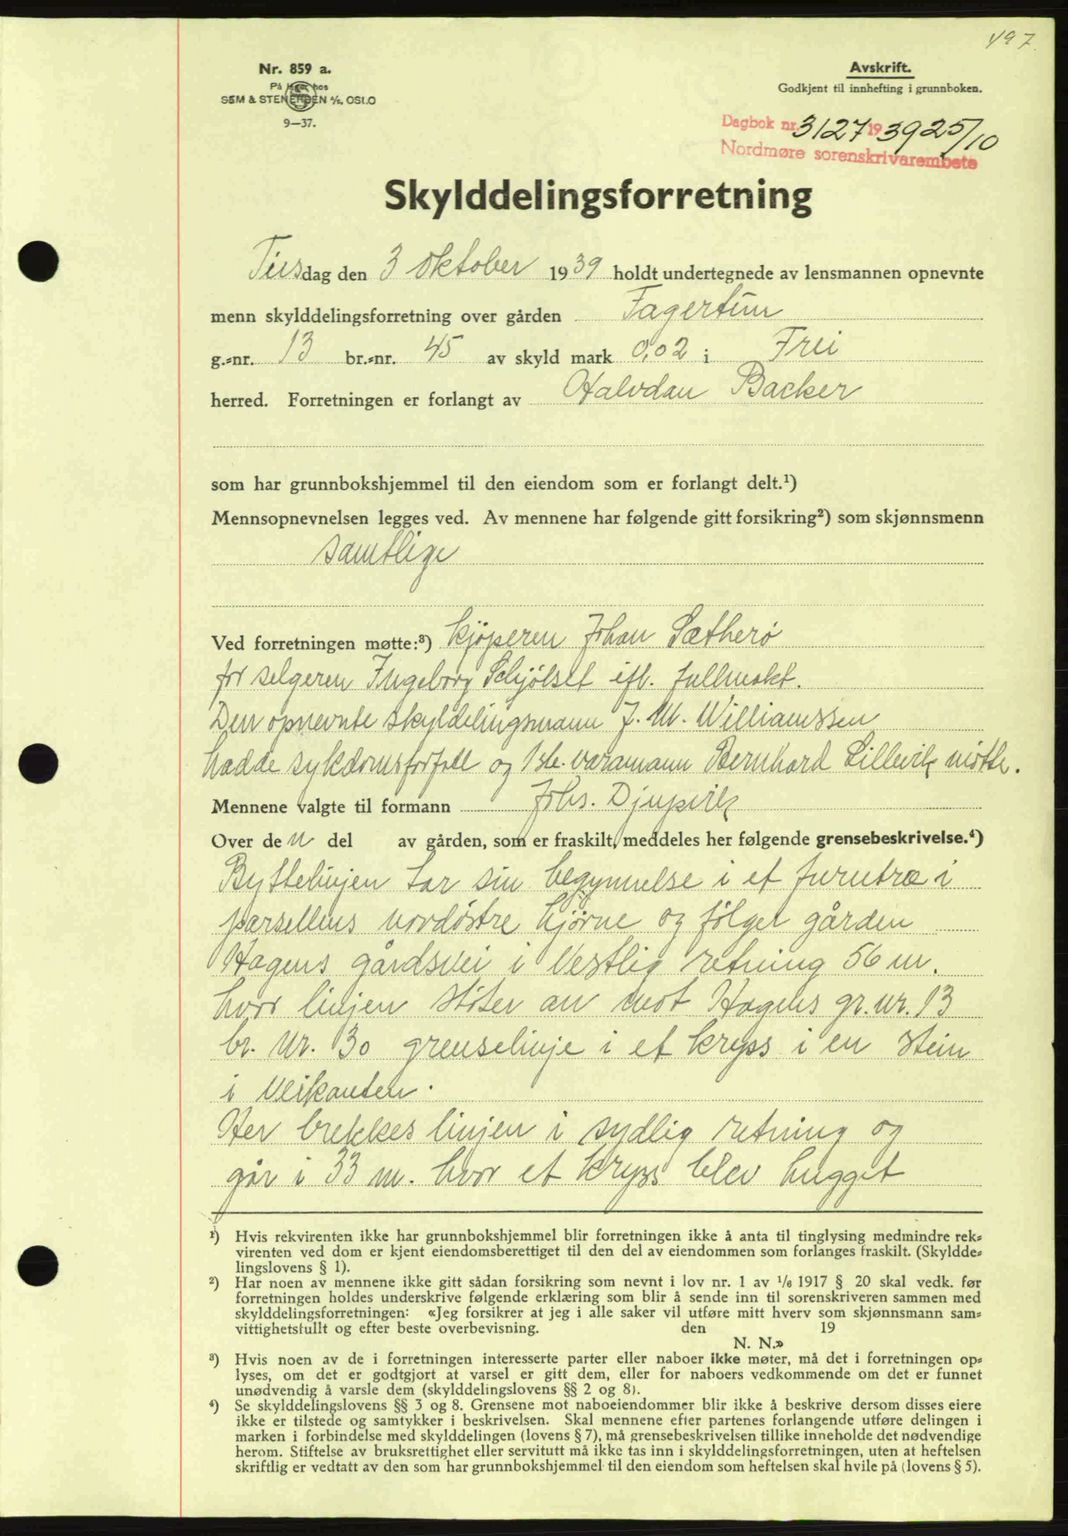 497.
Nr. 859 a.
På lager hos
SEM & STENERSEN A/S, OSLO
9-37.
Avskrift.
Godkjent til innhefting i grunnboken.
Dagbok nr. 3127 1939 25/10
Nordmøre sorenskrivarembete
Skylddelingsforretning
Tirsdag den 3 oktober 1939 holdt undertegnede av lensmannen opnevnte
menn skylddelingsforretning over gården Fagertun
g.-nr. 13 br.-nr. 45 av skyld mark 0,02 i Frei
herred. Forretningen er forlangt av Halvdan Backer
som har grunnbokshjemmel til den eiendom som er forlangt delt.¹)
Mennsopnevnelsen legges ved. Av mennene har følgende gitt forsikring²) som skjønnsmenn
samtlige
Ved forretningen møtte:³) kjøperen Johan Sætherø
for selgeren Ingeborg Schjølset ifl. fullmakt.
Den opnevnte skylddelingsmann J. M. Williamssen
hadde sykdomsforfall og 1ste. varamann Bernhard Lillevik møtte.
Mennene valgte til formann Johs. Djupvik
Over den del av gården, som er fraskilt, meddeles her følgende grensebeskrivelse.⁴)
Byttelinjen tar sin begynnelse i et furutræ i
parsellens nordøstre hjørne og følger gården
Hagens gårdsvei i vestlig retning 56 m.
hvor linjen støter an mot Hagens gr. nr. 13
br. nr. 30 grenselinje i et kryss i en stein
i veikanten.
Her brekkes linjen i sydlig retning og
går i 33 m. hvor et kryss blev hugget
¹) Hvis rekvirenten ikke har grunnbokshjemmel blir forretningen ikke å anta til tinglysing medmindre rek-
virenten ved dom er kjent eiendomsberettiget til den del av eiendommen som forlanges fraskilt. (Skyldde-
lingslovens § 1).
²) Har noen av mennene ikke gitt sådan forsikring som nevnt i lov nr. 1 av 1/6 1917 § 20 skal vedk. før
forretningen holdes underskrive følgende erklæring som blir å sende inn til sorenskriveren sammen med
skylddelingsforretningen: «Jeg forsikrer at jeg i alle saker vil utføre mitt hverv som skjønnsmann sam-
vittighetsfullt og efter beste overbevisning. den 19
N. N.»
³) Hvis noen av de i forretningen interesserte parter eller naboer ikke møter, må det i forretningen op-
lyses, om det er godtgjort at varsel er gitt dem, eller for naboers vedkommende om det er funnet
unødvendig å varsle dem (skylddelingslovens §§ 2 og 8).
⁴) Se skylddelingslovens §§ 3 og 8. Grensene mot naboeiendommer blir ikke å beskrive dersom disses eiere
ikke er tilstede og samtykker i beskrivelsen. Skal mennene efter partenes forlangende utføre delingen i
marken i forbindelse med skylddelingen (lovens § 7), må grensebeskrivelsen tillike inneholde det nødvendige
herom. Stiftelse av bruksrettighet eller servitutt må ikke tas inn i skylddelingsforretningen, uten at heftelsen
skriftlig er vedtatt av den som har grunnbokshjemmel til den eiendom som heftelsen skal hvile på (lovens § 5).